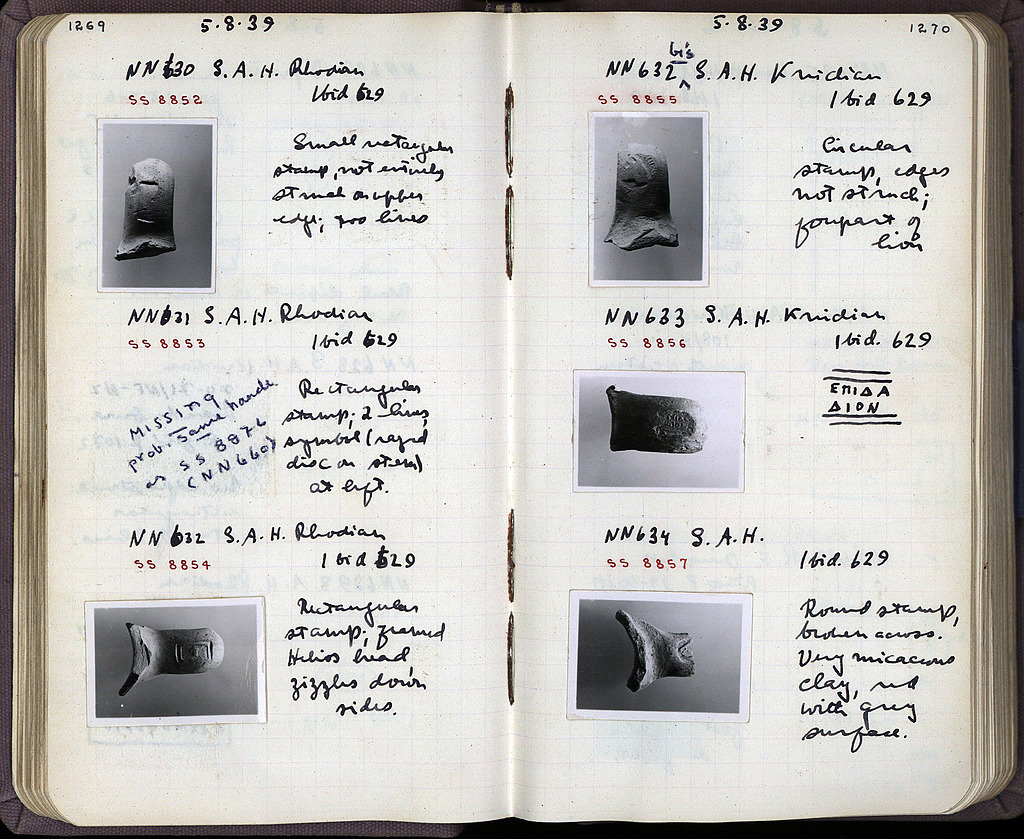 1269
5·8·39
NN630 S.A.H. Rhodian
SS 8852
Ibid 629
Small rectangular
stamp, not entirely
struck on upper
edge; two lines
NN631 S.A.H. Rhodian
SS 8853
Ibid 629
MISSING
prob. same handle
as SS 8874
(NN660)
Rectangular
stamp; 2 lines,
symbol (rayed
disc on stem)
at left.
NN632 S.A.H. Rhodian
SS 8854
Ibid 629
Rectangular
stamp; framed
Helios head,
zizzles down
sides.
5·8·39
1270
bis
NN632 ^ S.A.H. Knidian
SS 8855
Ibid 629
Circular
stamp, edges
not struck;
forepart of
lion
NN633 S.A.H. Knidian
SS 8856
Ibid. 629
ΕΠΙΔΑ
ΔΙΟΝ
NN634 S.A.H.
SS 8857
Ibid. 629
Round stamp,
broken across.
Very micaceous
clay, red
with grey
surface.